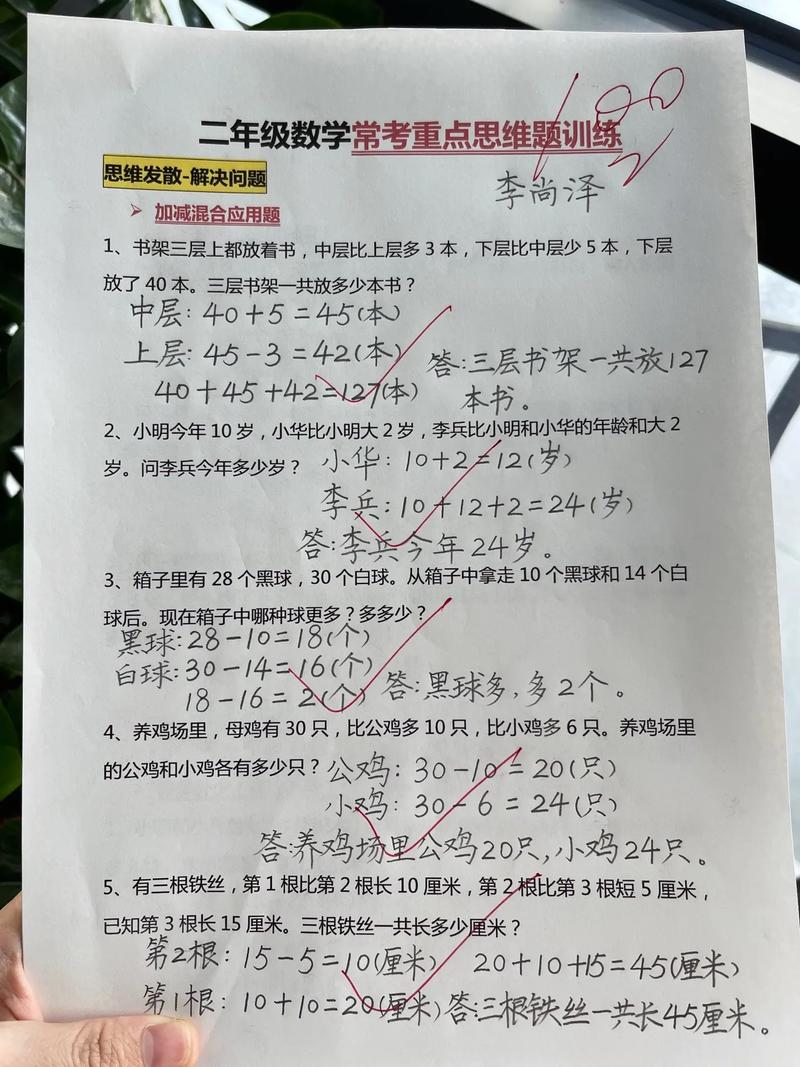 二年级数学常考重点思维题训练
100
思维发散-解决问题
李尚泽
➢ 加减混合应用题
1、书架三层上都放着书，中层比上层多3本，下层比中层少5本，下层
放了40本。三层书架一共放多少本书？
中层：40+5=45(本)
上层：45-3=42(本)
40+45+42=127(本)
答：三层书架一共放127
本书。
2、小明今年10岁，小华比小明大2岁，李兵比小明和小华的年龄和大2
岁。问李兵今年多少岁？
小华：10+2=12(岁)
李兵：10+12+2=24(岁)
答：李兵今年24岁。
3、箱子里有28个黑球，30个白球。从箱子中拿走10个黑球和14个白
球后。现在箱子中哪种球更多？多多少？
黑球：28-10=18(个)
白球：30-14=16(个)
18-16=2(个)
答：黑球多，多2个。
4、养鸡场里，母鸡有30只，比公鸡多10只，比小鸡多6只。养鸡场里
的公鸡和小鸡各有多少只？
公鸡：30-10=20(只)
小鸡：30-6=24(只)
答：养鸡场里公鸡20只，小鸡24只。
5、有三根铁丝，第1根比第2根长10厘米，第2根比第3根短5厘米，
已知第3根长15厘米。三根铁丝一共长多少厘米？
第2根：15-5=10(厘米)
20+10+15=45(厘米)
第1根：10+10=20(厘米)
答：三根铁丝一共长45厘米。